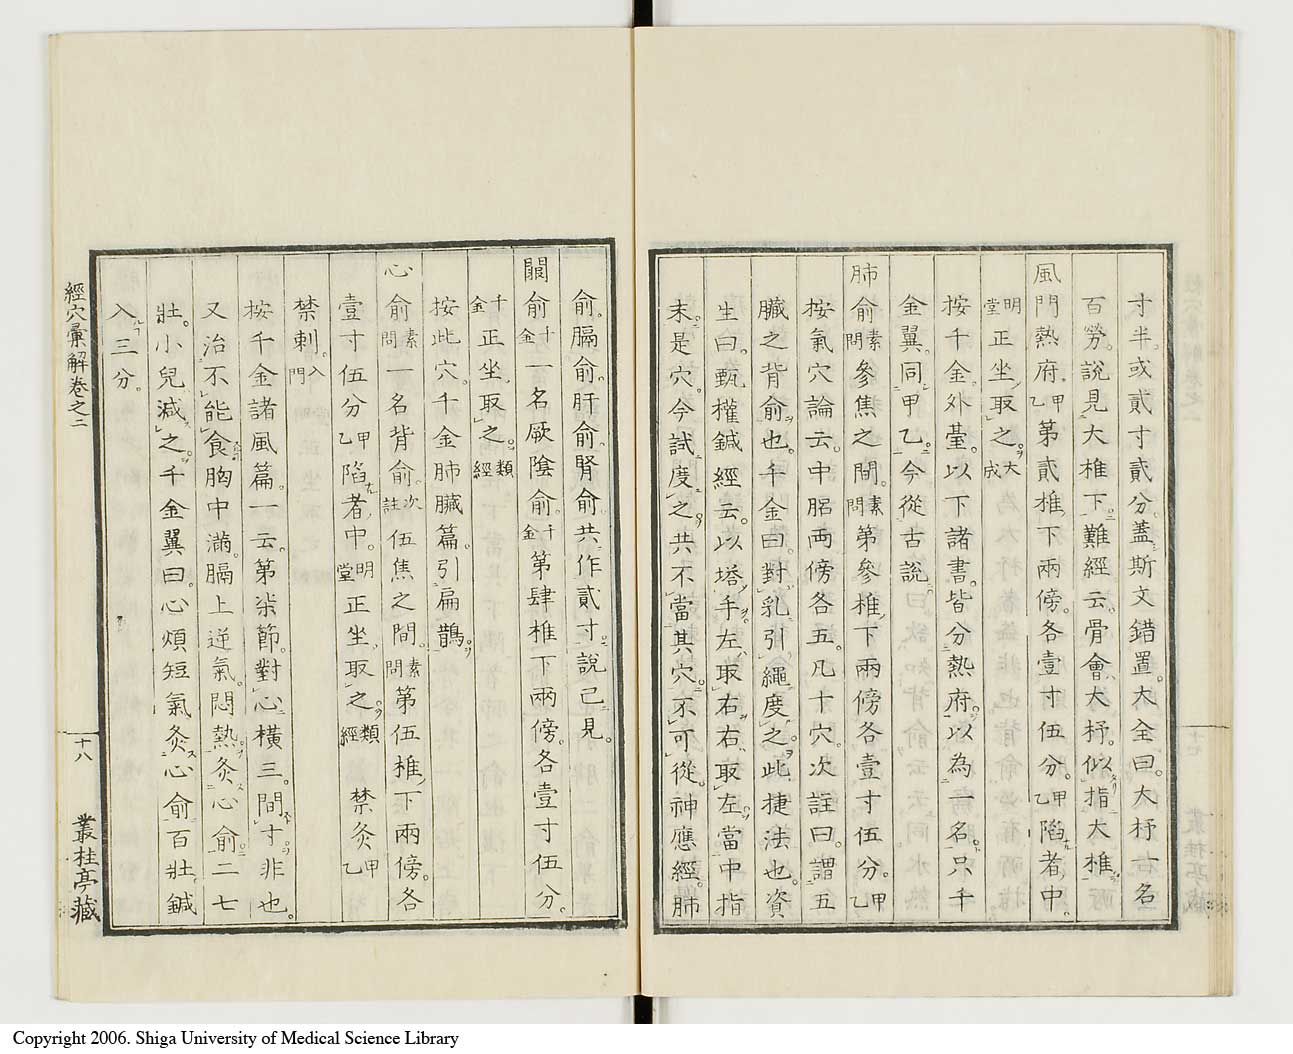 寸半。或貳寸貳分。蓋斯文錯置。大全曰。大杼一名
百勞。說見大椎下。難經云。骨會大杼。似指大椎。
風門熱府。甲乙第貳椎下兩傍。各壹寸伍分。甲乙陷者中。
明堂正坐取之。大成
按千金。外臺。以下諸書。皆分熱府。以為一名。只千
金翼。同甲乙。今從古說。
肺俞素問參焦之間。素問第參椎下兩傍各壹寸伍分。甲乙
按氣穴論云。中䏚兩傍各五。凡十穴。次註曰。謂五
臟之背俞也。千金曰。對乳引繩度之。此捷法也。資
生曰。甄權鍼經云。以搭手左取右。右取左。當中指
末是穴。今試度之。共不當其穴。不可從。神應經。肺
俞。膈俞。肝俞。腎俞。共作貳寸。說已見。
闕俞千金一名厥陰俞。千金第肆椎下兩傍。各壹寸伍分。
千金正坐取之。類經
按此穴。千金肺臟篇。引扁鵲。
心俞素問一名背俞。次註伍焦之間。素問第伍椎下兩傍。各
壹寸伍分。甲乙陷者中。明堂正坐取之。類經禁灸甲乙
禁刺。入門
按千金諸風篇。一云。第柒節。對心橫三。間寸非也。
又治不能食。胸中滿。膈上逆氣。悶熱。灸心俞二七
壯。小兒減之。千金翼曰。心煩短氣。灸心俞百壯。鍼
入三分。
經穴彙解卷之二
十八
叢桂亭藏
Copyright 2006. Shiga University of Medical Science Library